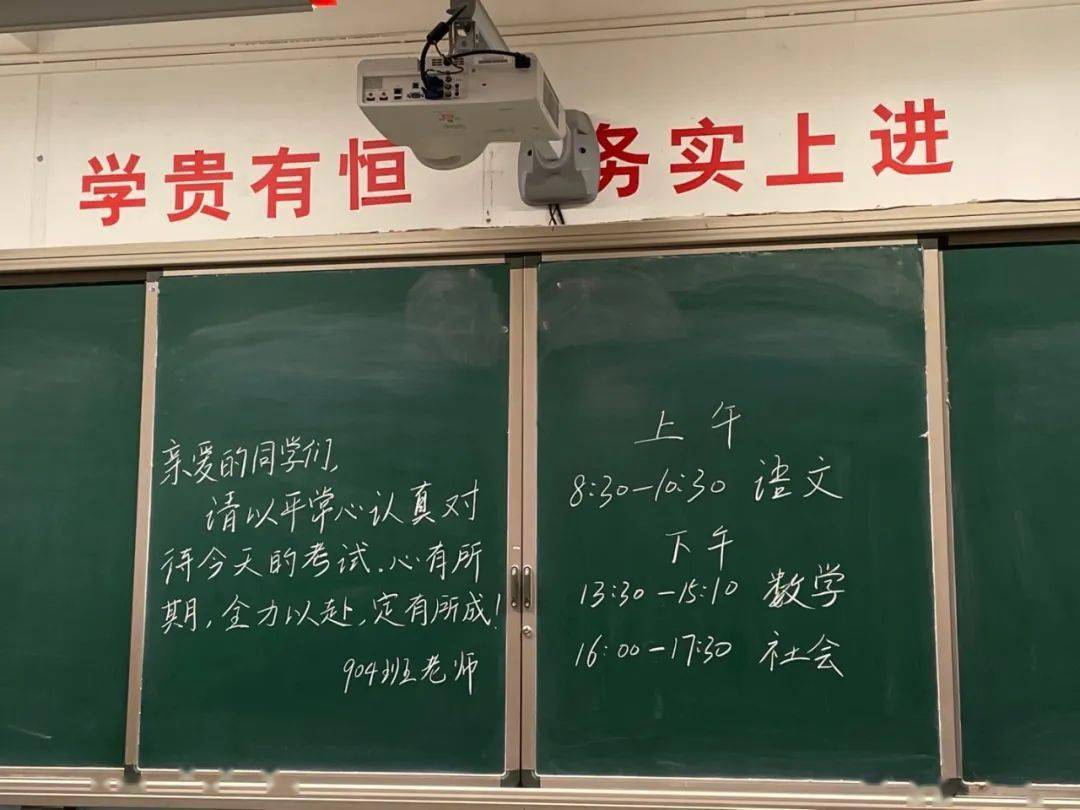 学贵有恒 务实上进
亲爱的同学们,
请以平常心认真对
待今天的考试.心有所
期,全力以赴,定有所成!
904班老师
上午
8:30-10:30 语文
下午
13:30-15:10 数学
16:00-17:30 社会